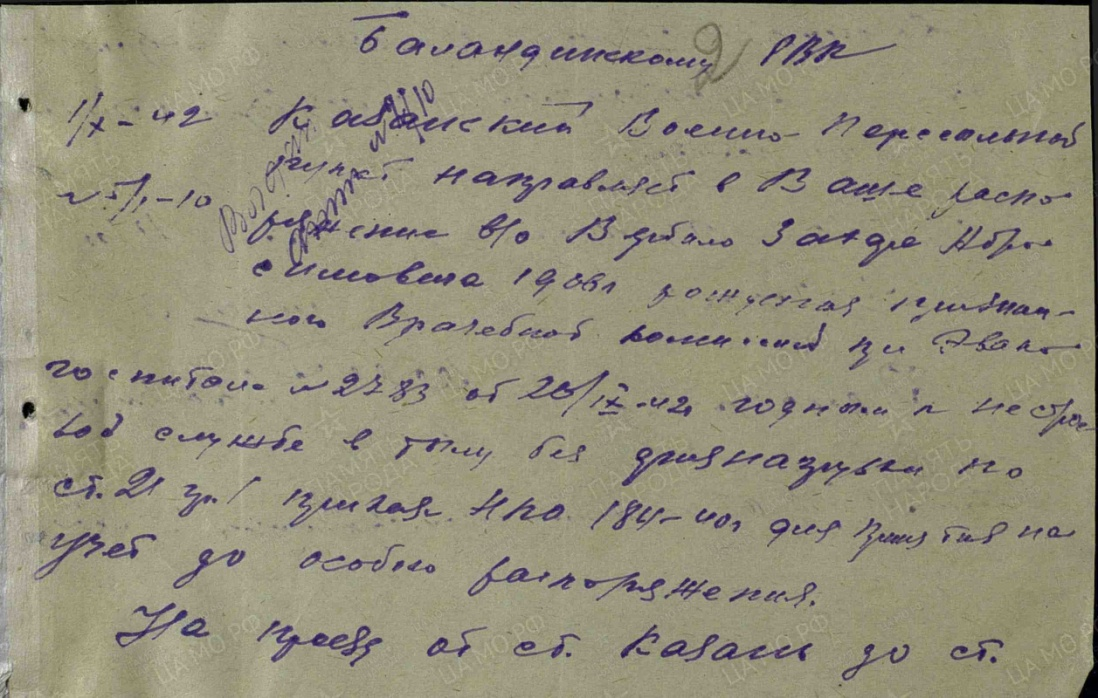 Баландинскому РВК
2
1/X-42 Казанский Военно-Пересыльный
№5/1-10 пункт направляет в Ваше распо
ряжение в/о Абро
симовича 1906г рождения признан-
ного Врачебной комиссией при Эвако
госпитале №2783 от 26/IX-42 годным к нестрое
вой службе в тылу без физнагрузки по
ст. 21 гр. I приказа НКО 184-40г для принятия на
учет до особого распоряжения.
На проезд от ст. Казань до ст.